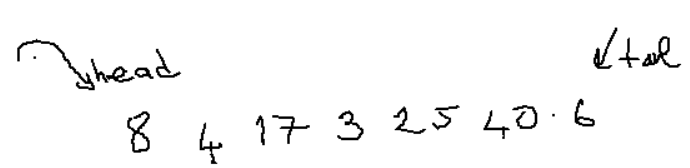 head tail
8 4 17 3 25 40 . 6